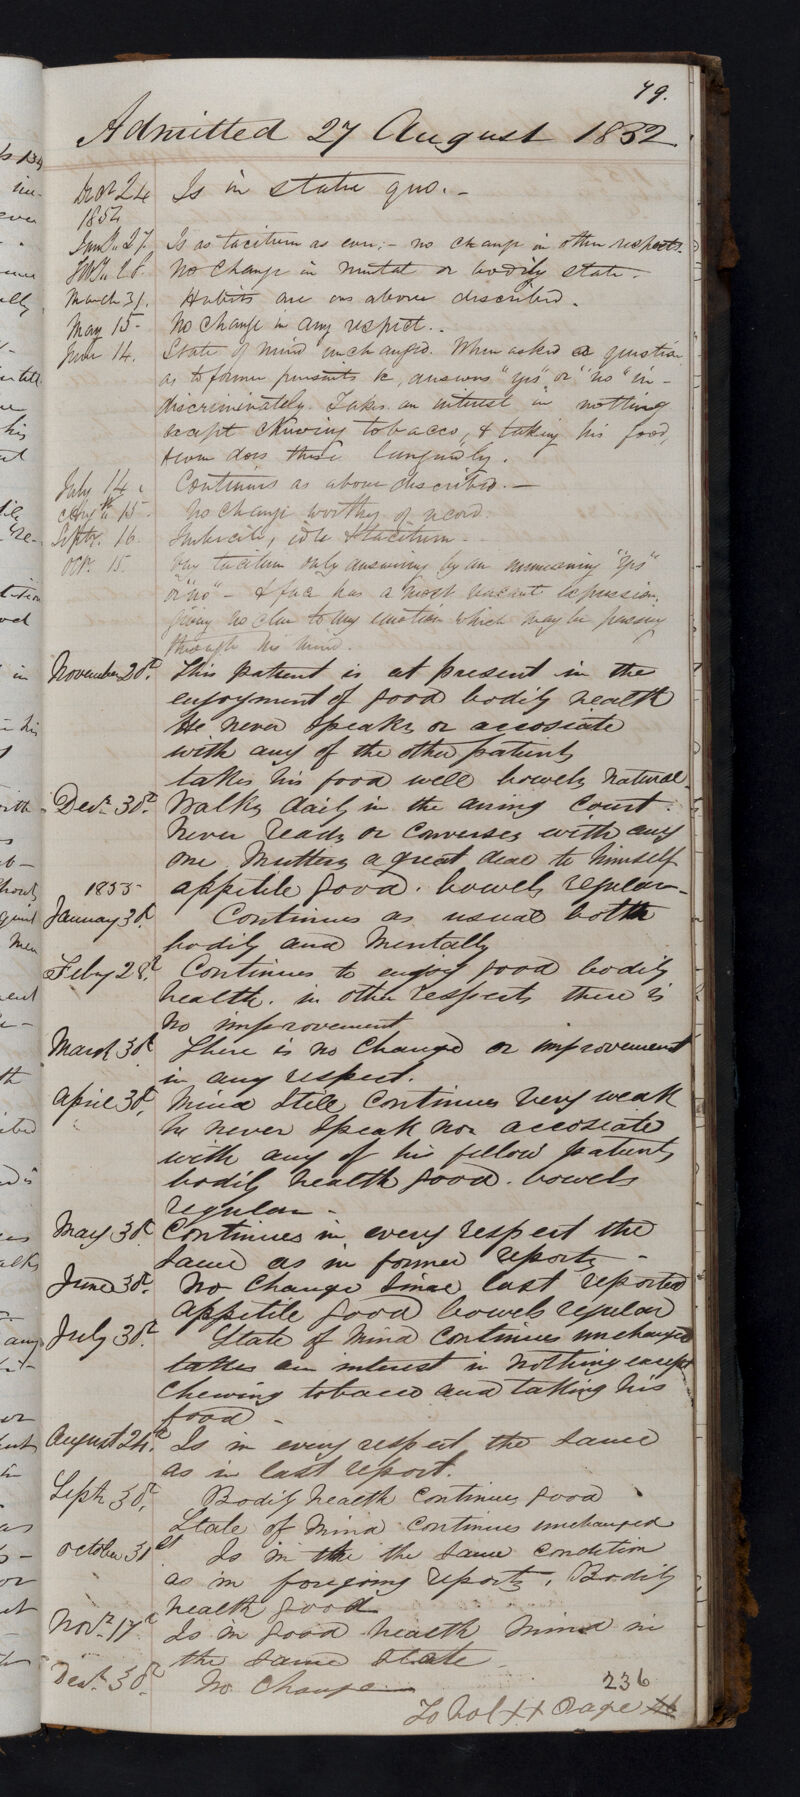 79.
Admitted 27 August 1832
Decr 24 Is in statu quo. -
1854
Jany. 27. Is as taciturn as ever; - no change in other respects.
Feby. 28. No change in mental or bodily state.
March 31. Habits are as above described.
May 15 - No change in any respect. .
June 14. State of mind unchanged. When asked a question
as to former pursuits &c, answers "yes" or "no" in -
discriminately. Takes an interest in nothing
except chewing tobacco, & taking his food,
& even does these languidly.
July 14. Continues as above described. -
Augth 15 - No change worthy of record.
Septr. 16. Imbecile, idle & taciturn -
Oct. 15. Very taciturn only answering by an unmeaning "yes"
or "no" - & face has a most vacant expression,
giving no clue to any emotion which may be passing
through his mind.
November 20th. This patient is at present in the
enjoyment of good bodily health
He never speaks or accosiate
with any of the other patients
takes his food well bowels natural.
Decr. 30th. Walks daily in the airing court.
Never reads or converses with any
one. Mutters a great deal to himself
1855 appetite good. bowels regular -
January 30th. Continues as usual both
bodily and mentally
Feby 28th. Continues to enjoy good bodily
health. in other respects there is
no improvement
March 30th There is no change or improvement
in any respect.
April 30th. Mind still continues very weak
he never speak nor accosiate
with any of his fellow patients
bodily health good. bowels
regular -
May 30th Continues in every respect the
same as in former reports -
June 30th. No change since last reported
appetite good bowels regular
July 30th. State of mind continues unchanged
takes an interest in nothing except
chewing tobacco and taking his
food -
August 24th. Is in every respect the same
as in last report.
Septr 30th. Bodily health continues good
State of mind continues unchanged
October 31st Is in the the same condition
as in foregoing reports. Bodily
health good
Novr. 17th Is in good health mind in
the same state
Decr. 30th. No change
236
To Vol Page